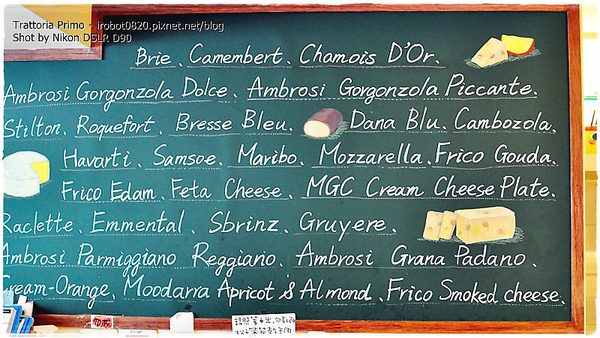 Trattoria Primo - irobot0820.pixnet.net/blog
Shot by Nikon DSLR D90
Brie、Camembert、Chamois D'Or、
Ambrosi Gorgonzola Dolce、Ambrosi Gorgonzola Piccante、
Stilton、Roquefort、Bresse Bleu、Dana Blu、Cambozola、
Havarti、Samsoe、Maribo、Mozzarella、Frico Gouda、
Frico Edam、Feta Cheese、MGC Cream Cheese Plate、
Raclette、Emmental、Sbrinz、Gruyere、
Ambrosi Parmiggiano Reggiano、Ambrosi Grana Padano、
Cream-Orange、Moodarra Apricot & Almond、Frico Smoked cheese、